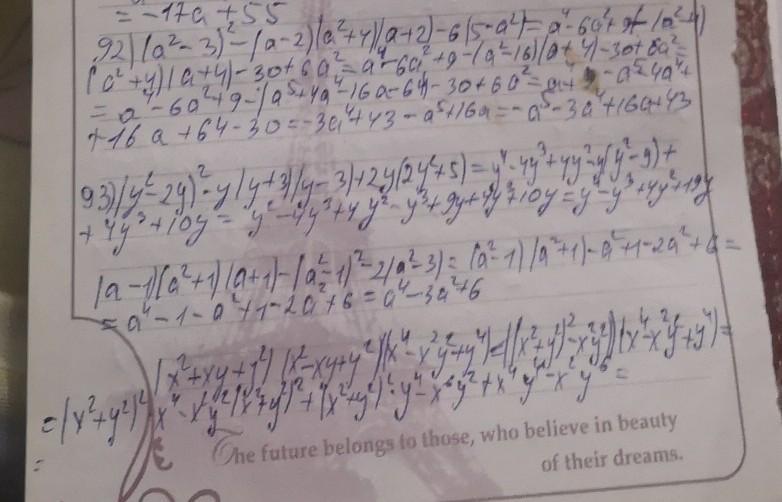 = -17a + 55
92) (a² - 3)² - (a - 2)(a² + 4)(a + 2) - 6(5 - a²) = a⁴ - 6a² + 9 - (a² - 4)
(a² + 4)(a + 4) - 30 + 6a² = a⁴ - 6a² + 9 - (a² - 16)(a + 4) - 30 + 6a² =
= a⁴ - 6a² + 9 - (a⁵ + 4a⁴ - 16a - 64 - 30 + 6a² = a⁴ + 9 - a⁵ - 4a⁴ +
+ 16a + 64 - 30 = -3a⁴ + 43 - a⁵ + 16a = -a⁵ - 3a⁴ + 16a + 43
93) (y² - 2y)² - y(y + 3)(y - 3) + 2y(2y² + 5) = y⁴ - 4y³ + 4y² - y(y² - 9) +
+ 4y³ + 10y = y² - 4y³ + 4y² - y³ + 9y + 4y³ + 10y = y⁴ - y³ + 4y² + 19y
(a - 1)(a² + 1)(a + 1) - (a² - 1)² - 2(a² - 3) = (a² - 1)(a² + 1) - a² + 1 - 2a² + 6 =
= a⁴ - 1 - a² + 1 - 2a² + 6 = a⁴ - 3a² + 6
(x² + xy + y²)(x² - xy + y²)(x⁴ - x²y² + y⁴) = ((x² + y²)² - x²y²)(x⁴ - x²y² + y⁴) =
= (x² + y²)² x⁴ - x²y²(x² + y²)² + (x² + y²)² · y⁴ - x⁶y² + x⁴y⁴ - x²y⁶ =
=
The future belongs to those, who believe in beauty
of their dreams.